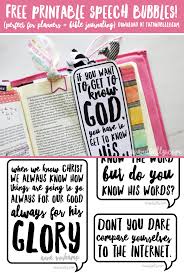 FREE PRINTABLE SPEECH BUBBLES!
(perfect for planners + bible journaling)
IF YOU WANT
TO GET TO
know
GOD
you have to
GET TO KNOW
his
when we know CHRIST
WE ALWAYS KNOW HOW
THINGS ARE going to go
ALWAYS FOR OUR GOOD
always for his
GLORY
know the WORD
but do you
KNOW HIS WORDS?
DON'T YOU DARE
compare yourselves
TO THE INTERNET.